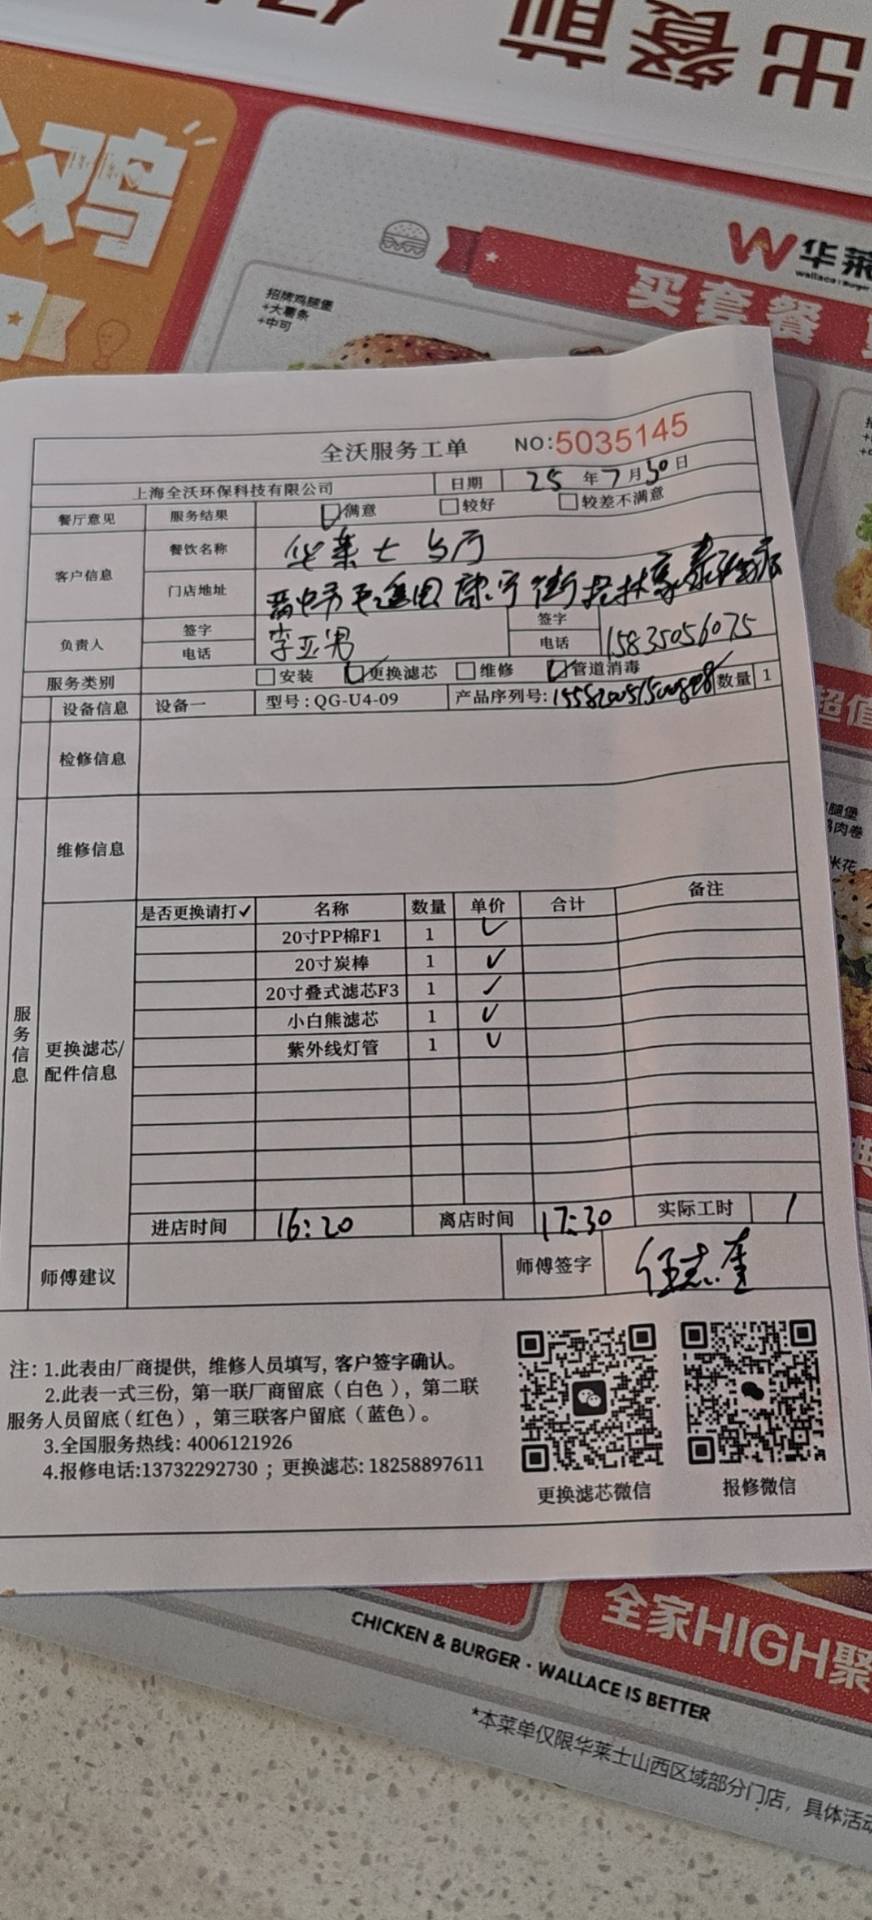 出餐前
鸡
W 华莱
wallace Burger
买套餐
招牌鸡腿堡
+大薯条
+中可
全沃服务工单 NO:5035145
上海全沃环保科技有限公司 日期 25 年 7 月 30 日
餐厅意见 服务结果 满意 较好 较差不满意
客户信息 餐饮名称 华莱士 餐厅
门店地址 晋中市 街
负责人 签字 李亚男 签字
电话 电话 15835056075
服务类别 安装 更换滤芯 维修 管道消毒
设备信息 设备一 型号:QG-U4-09 产品序列号: 数量 1
检修信息
维修信息
服务信息
更换滤芯/
配件信息
是否更换请打✓ 名称 数量 单价 合计 备注
20寸PP棉F1 1 ✓
20寸炭棒 1 ✓
20寸叠式滤芯F3 1 ✓
小白熊滤芯 1 ✓
紫外线灯管 1 ✓
进店时间 16:20 离店时间 17:30 实际工时 1
师傅建议 师傅签字 任志奎
注: 1.此表由厂商提供, 维修人员填写, 客户签字确认。
2.此表一式三份, 第一联厂商留底(白色), 第二联
服务人员留底(红色), 第三联客户留底(蓝色)。
3.全国服务热线: 4006121926
4.报修电话:13732292730 ; 更换滤芯: 18258897611
更换滤芯微信 报修微信
超值
腿堡
鸡肉卷
米花
全家HIGH聚
CHICKEN & BURGER · WALLACE IS BETTER
*本菜单仅限华莱士山西区域部分门店, 具体活动